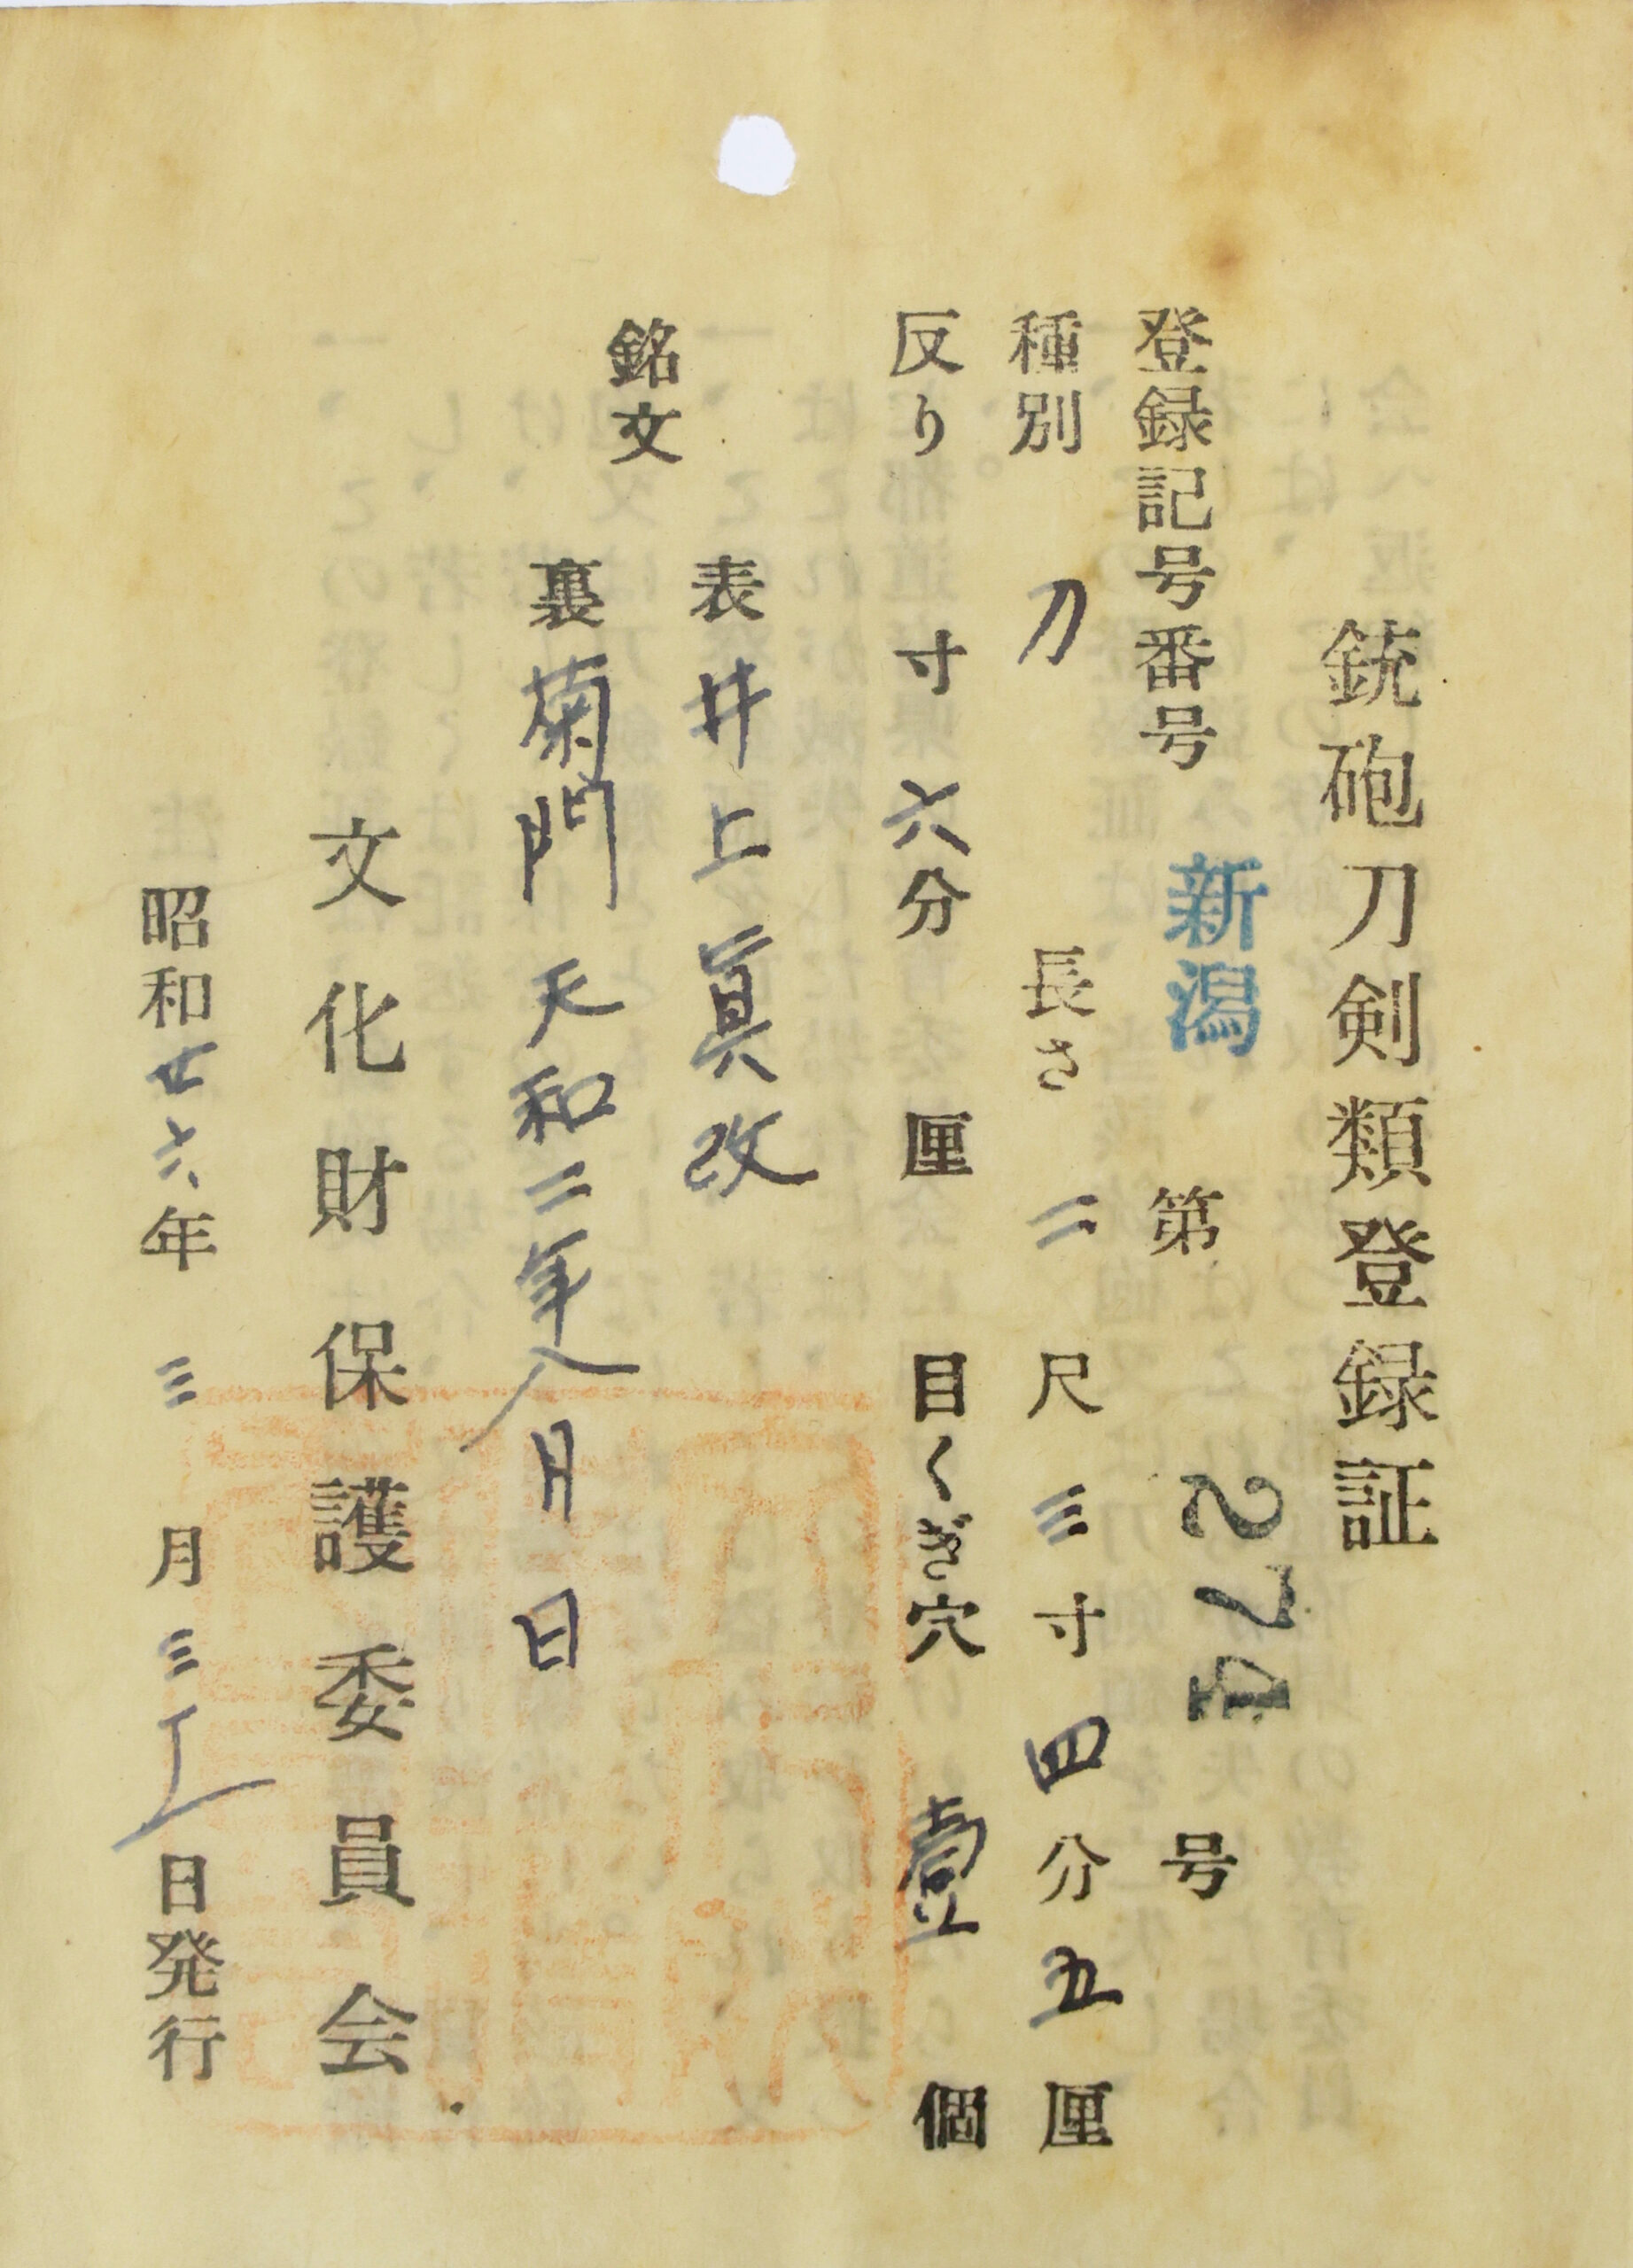 銃砲刀剣類登録証
登録記号番号 新潟 第 274 号
種別 刀 長さ 二尺三寸四分五厘
反り 寸六分 厘 目くぎ穴 壹個
銘文
表 井上真改
裏 菊門 天和二年八月日
文化財保護委員会
昭和廿六年三月三十一日発行